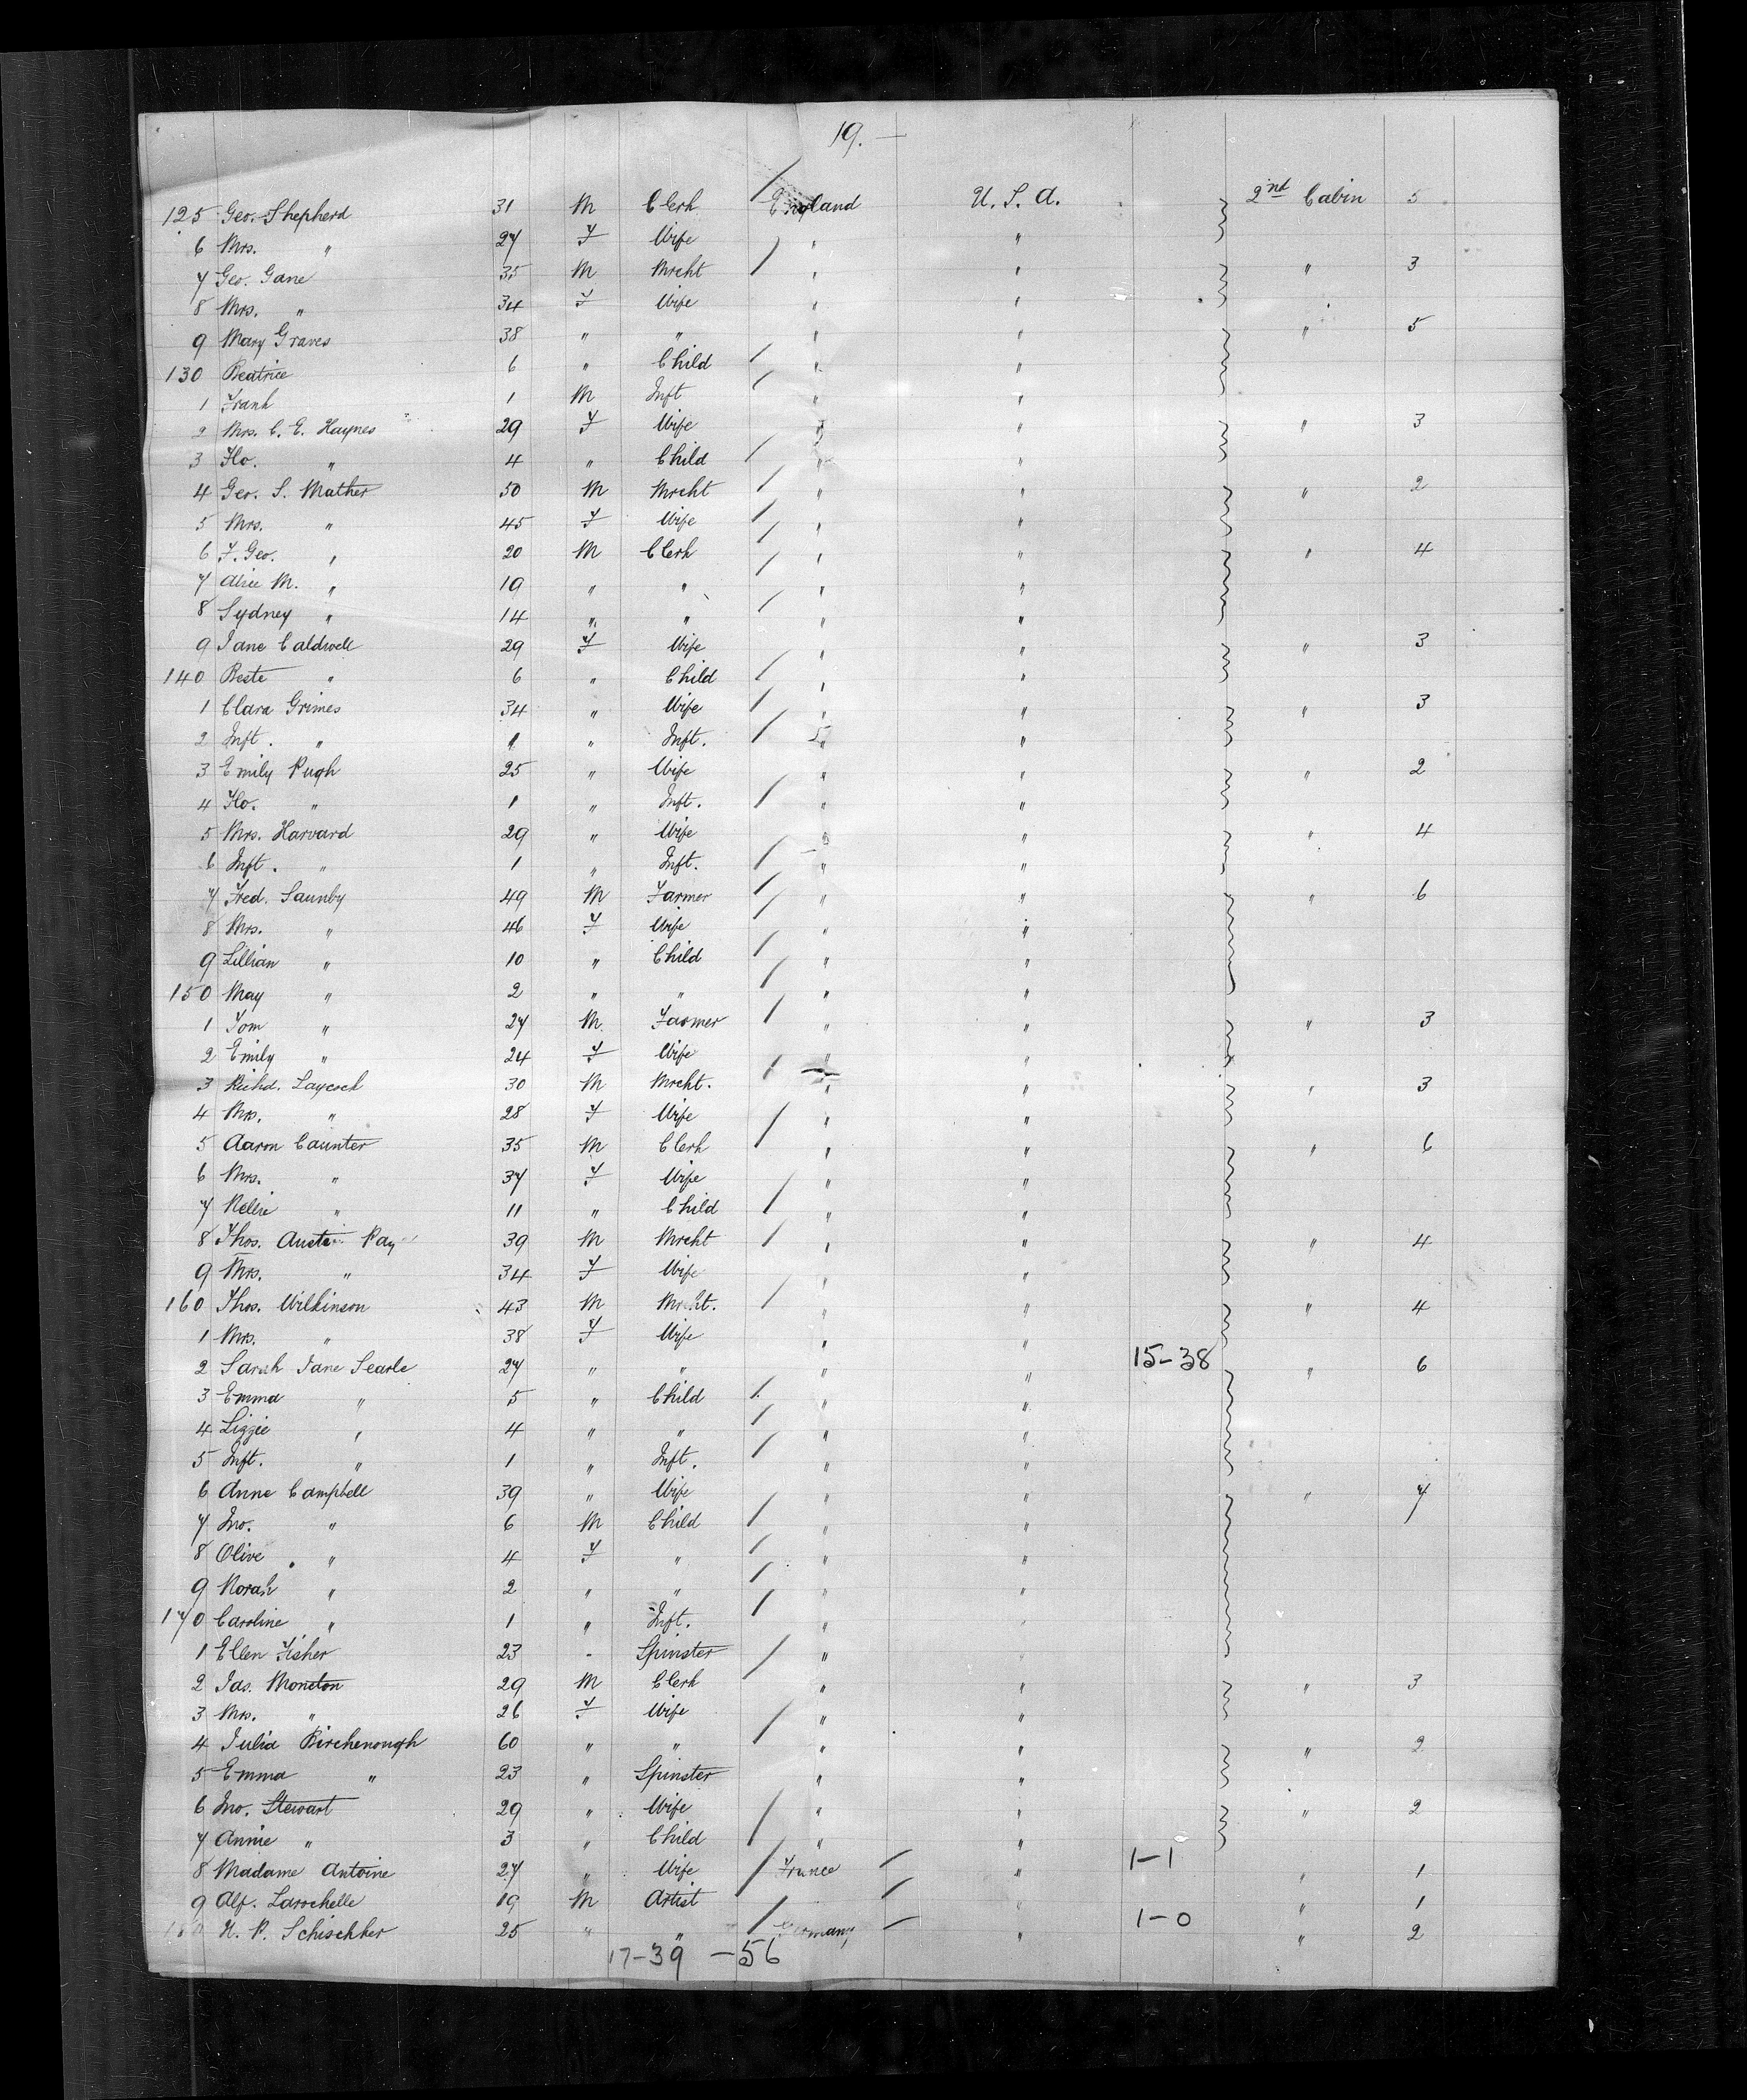 19. —
125 Geo. Shepherd 31 M Clerk England U. S. A. 2nd Cabin 5
6 Mrs. " 27 F Wife " "
7 Geo. Gane 35 M Mrcht " " " 3
8 Mrs. " 34 F Wife " "
9 Mary Graves 38 " " " " " 5
130 Beatrice 6 " Child " "
1 Frank 1 M Inft " "
2 Mrs. C. E. Haynes 29 F Wife " " " 3
3 Flo. " 4 " Child " "
4 Geo. S. Mather 50 M Mrcht " " " 2
5 Mrs. " 45 F Wife " "
6 F. Geo. " 20 M Clerk " " " 4
7 Alice M. " 19 " " " "
8 Sydney " 14 " " " "
9 Jane Caldwell 29 F Wife " " " 3
140 Beste " 6 " Child " "
1 Clara Grimes 34 " Wife " " " 3
2 Inft. " 1 " Inft. " "
3 Emily Pugh 25 " Wife " " " 2
4 Flo. " 1 " Inft. " "
5 Mrs. Harvard 29 " Wife " " " 4
6 Inft. " 1 " Inft. " "
7 Fred. Saunby 49 M Farmer " " " 6
8 Mrs. " 46 F Wife " "
9 Lillian " 10 " Child " "
150 May " 2 " " " "
1 Tom " 27 M Farmer " " " 3
2 Emily " 24 F Wife " "
3 Richd. Laycock 30 M Mrcht. " " " 3
4 Mrs. " 28 F Wife " "
5 Aaron Caunter 35 M Clerk " " " 6
6 Mrs. " 37 F Wife " "
7 Nellie " 11 " Child " "
8 Thos. Austin 39 M Mrcht " " " 4
9 Mrs. " 34 F Wife " "
160 Thos. Wilkinson 43 M Mrcht. " " " 4
1 Mrs. " 38 F Wife " "
2 Sarah Jane Searle 27 " " " " 15-38 " 6
3 Emma " 5 " Child " "
4 Lizzie " 4 " " " "
5 Inft. " 1 " Inft. " "
6 Anne Campbell 39 " Wife " " " 7
7 Jno. " 6 M Child " "
8 Olive " 4 F " " "
9 Norah " 2 " " " "
170 Caroline " 1 " Inft. " "
1 Ellen Fisher 23 - Spinster " "
2 Jas. Moncton 29 M Clerk " " " 3
3 Mrs. " 26 F Wife " "
4 Julia Birchenough 60 " " " " " 2
5 Emma " 23 " Spinster " "
6 Jno. Stewart 29 " Wife " " " 2
7 Annie " 3 " Child " "
8 Madame Antoine 27 " Wife France " 1-1 " 1
9 Alf. Larochelle 19 M Artist " " 1
180 H. P. Schischker 25 " " Germany " 1-0 " 2
17-39 -56